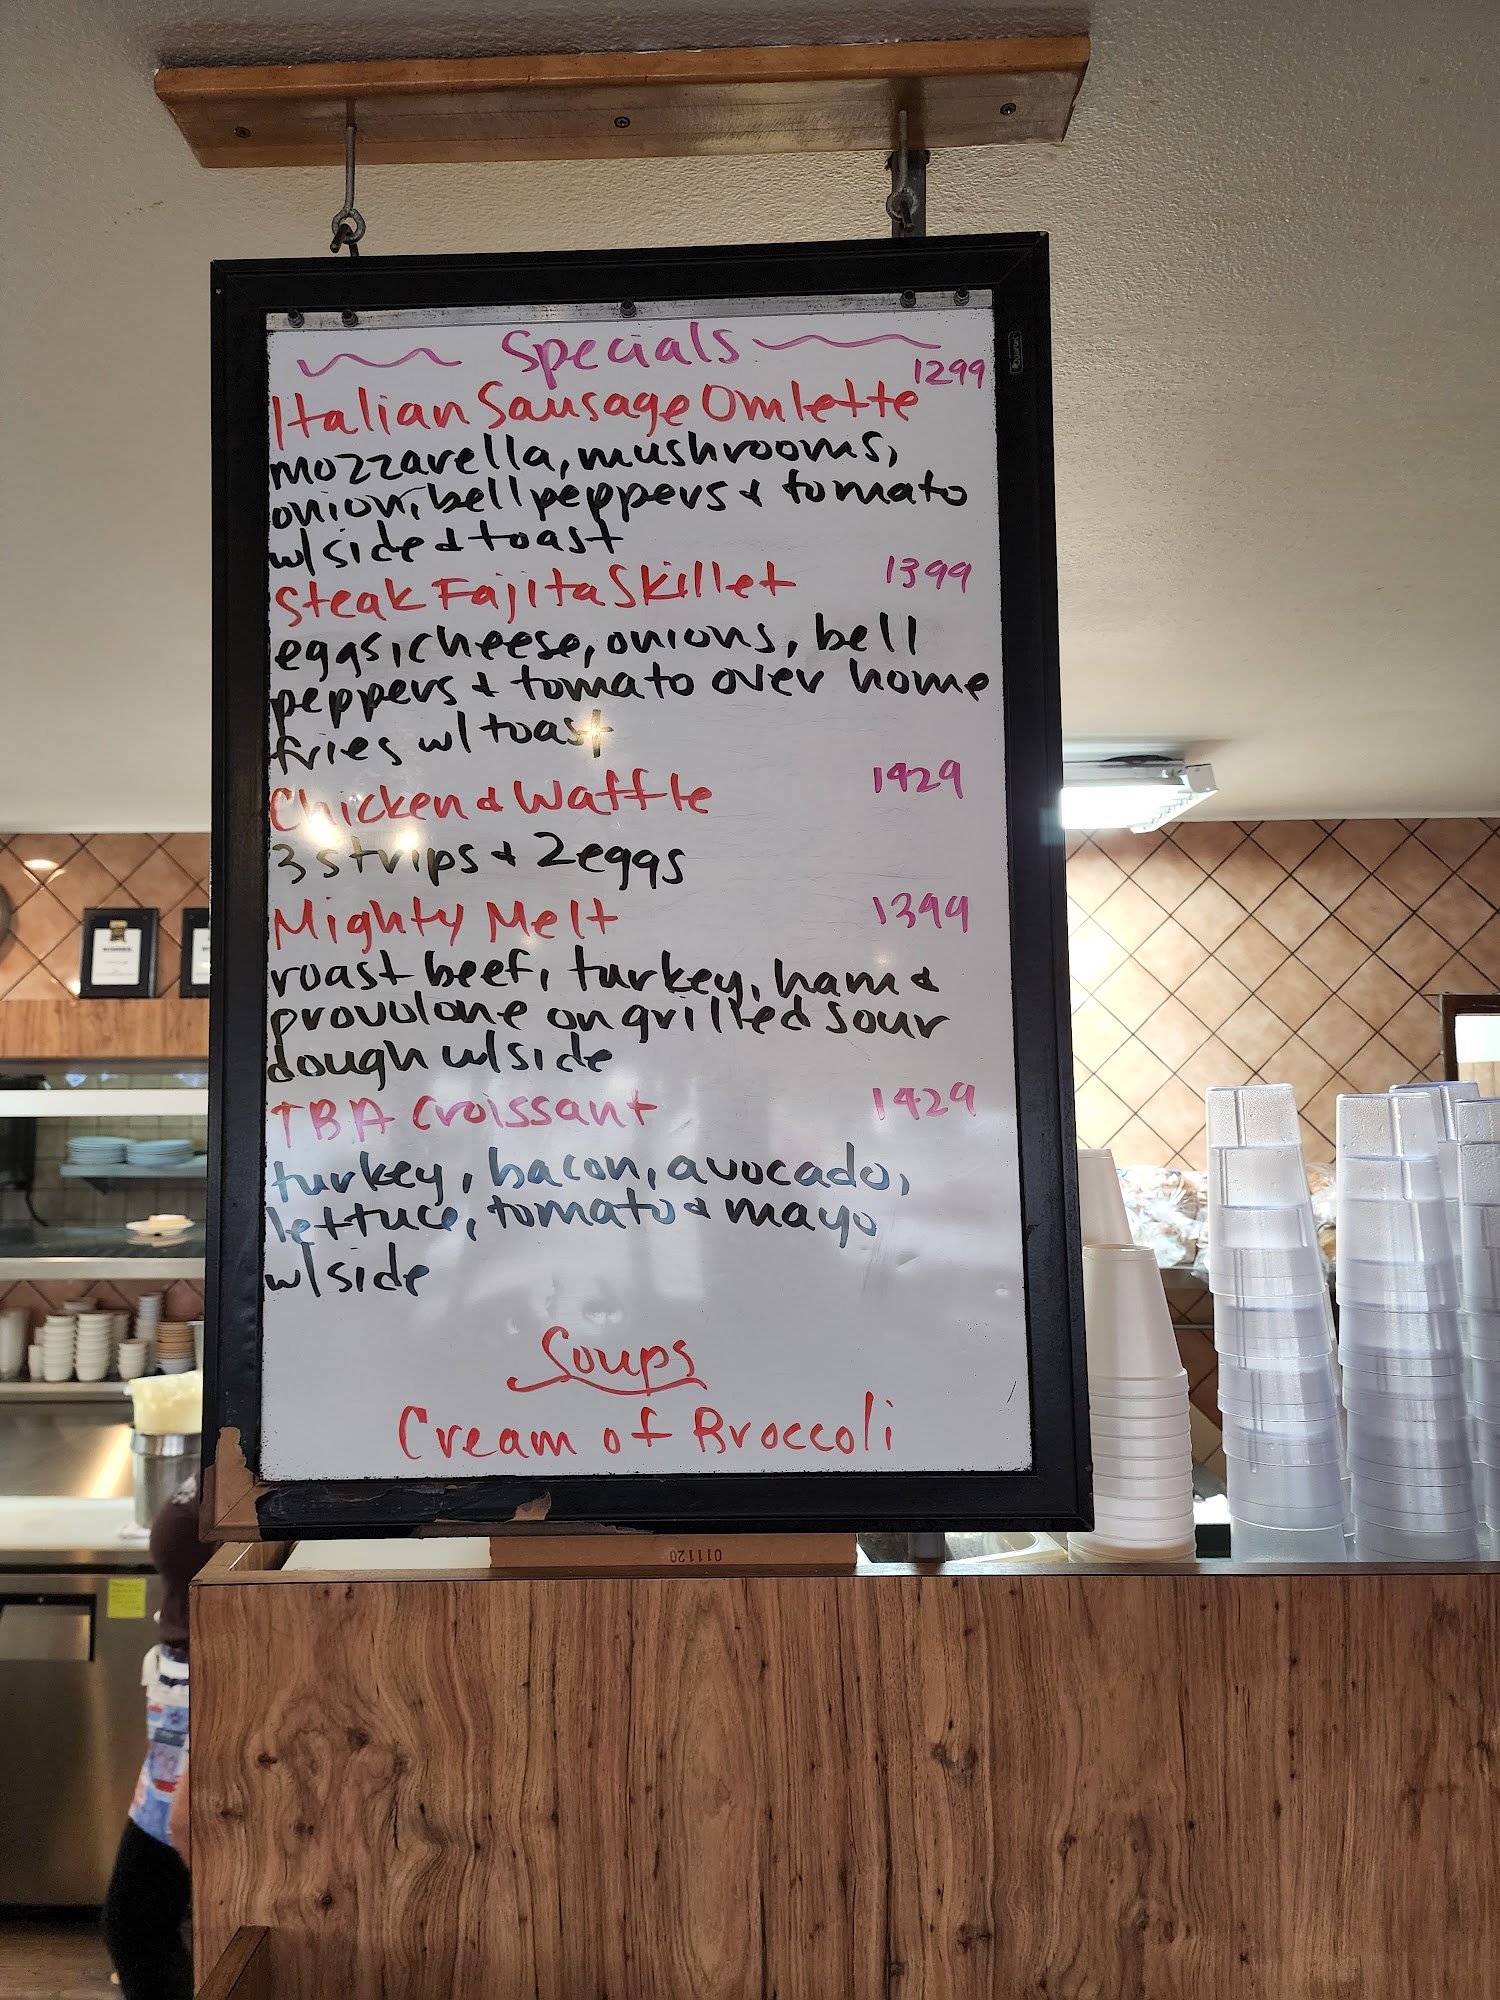 Specials
1299
Italian Sausage Omlette
mozzarella, mushrooms,
onion, bell peppers & tomato
w/ side & toast
Steak Fajita Skillet 1399
eggs, cheese, onions, bell
peppers & tomato over home
fries w/ toast
Chicken & Waffle 1429
3 strips & 2 eggs
Mighty Melt 1399
roast beef, turkey, ham &
provolone on grilled sour
dough w/ side
TBA Croissant 1429
turkey, bacon, avocado,
lettuce, tomato & mayo
w/ side
Soups
Cream of Broccoli
011120